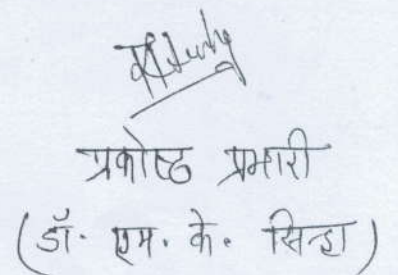 प्रकोष्ठ प्रभारी
(डॉ. एम. के. सिन्हा)